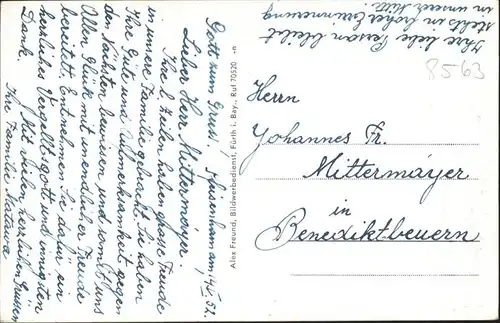 Gott zum Gruss!
Lieber Herr Mittermayer!
Ihre l. Zeilen haben grosse Freude
in unsere Familie gebracht. Sie haben
Ihre Güte und Aufmerksamkeit gegen
den Nächsten bewiesen und somit uns
Allen Glück mit unendlicher Freude
bereitet. Entnehmen Sie dafür ein
herzliches Vergeltsgott und innigsten
Dank.
Mit vielen herzlichen Grüssen
Ihre Familie
Ihre liebe Person bleibt
stets in hoher Erinnerung
in unserer Mitte.
Alex Freund, Bildwerbedienst, Fürth i. Bay., Ruf 70520
8563
Herrn
Johannes Fr.
Mittermayer
in
Benediktbeuern